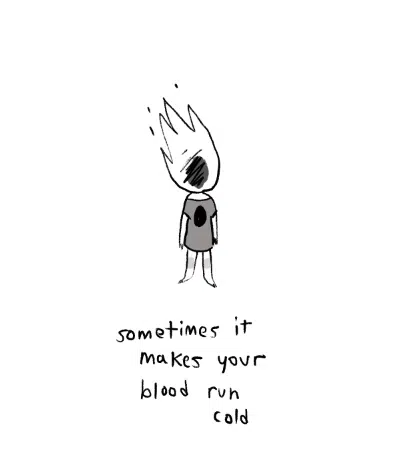 sometimes it
makes your
blood run
cold